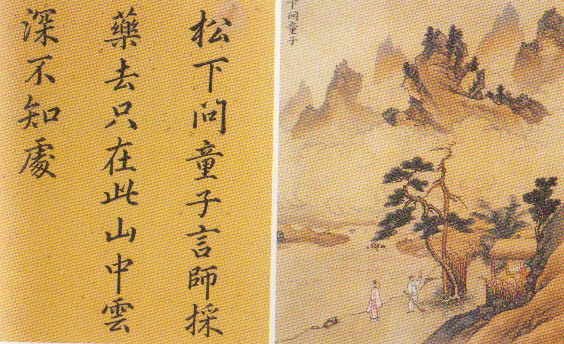 松下问童子言師採
藥去只在此山中雲
深不知處
下問童子